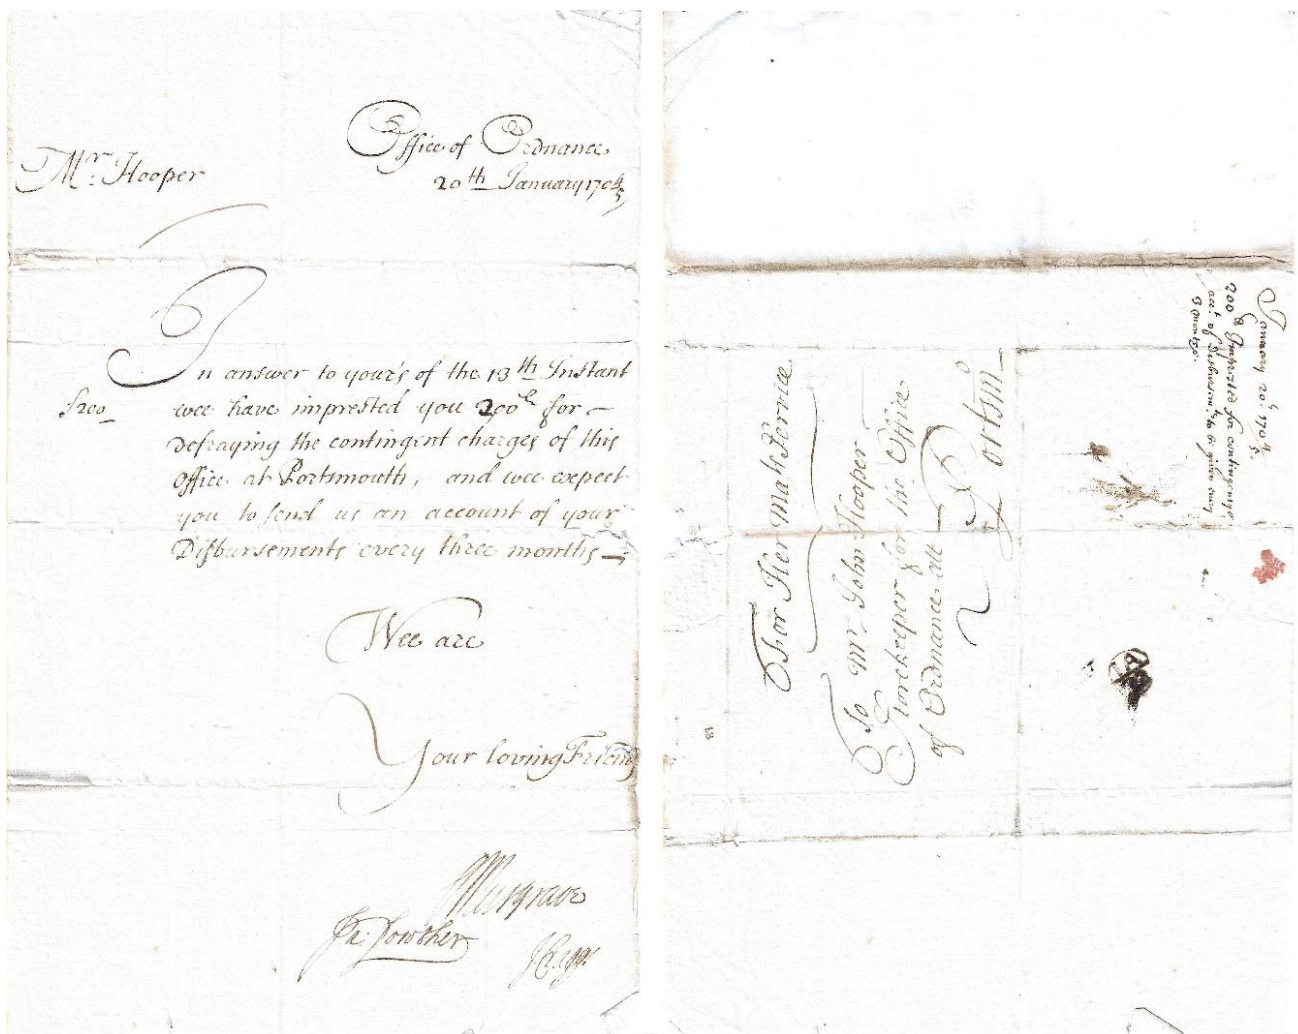 Office of Ordnance
20th January 1704/5
Mr. Hooper
In answer to your's of the 13th Instant
£200 wee have imprested you 200l for
Defraying the contingent charges of this
Office at Portsmouth, and wee expect
you to send us an account of your
Disbursements every three months
Wee are
Your loving Friends
Musgrave
Ja: Lowther
JCraggs
For Her Matts Service
To Mr. John Hooper
Storekeeper for the Office
of Ordnance att
Portsmo
January 20t. 1704/5
200 Imprested for contingencys
acct. of Disbursmts to be given every
3 months.